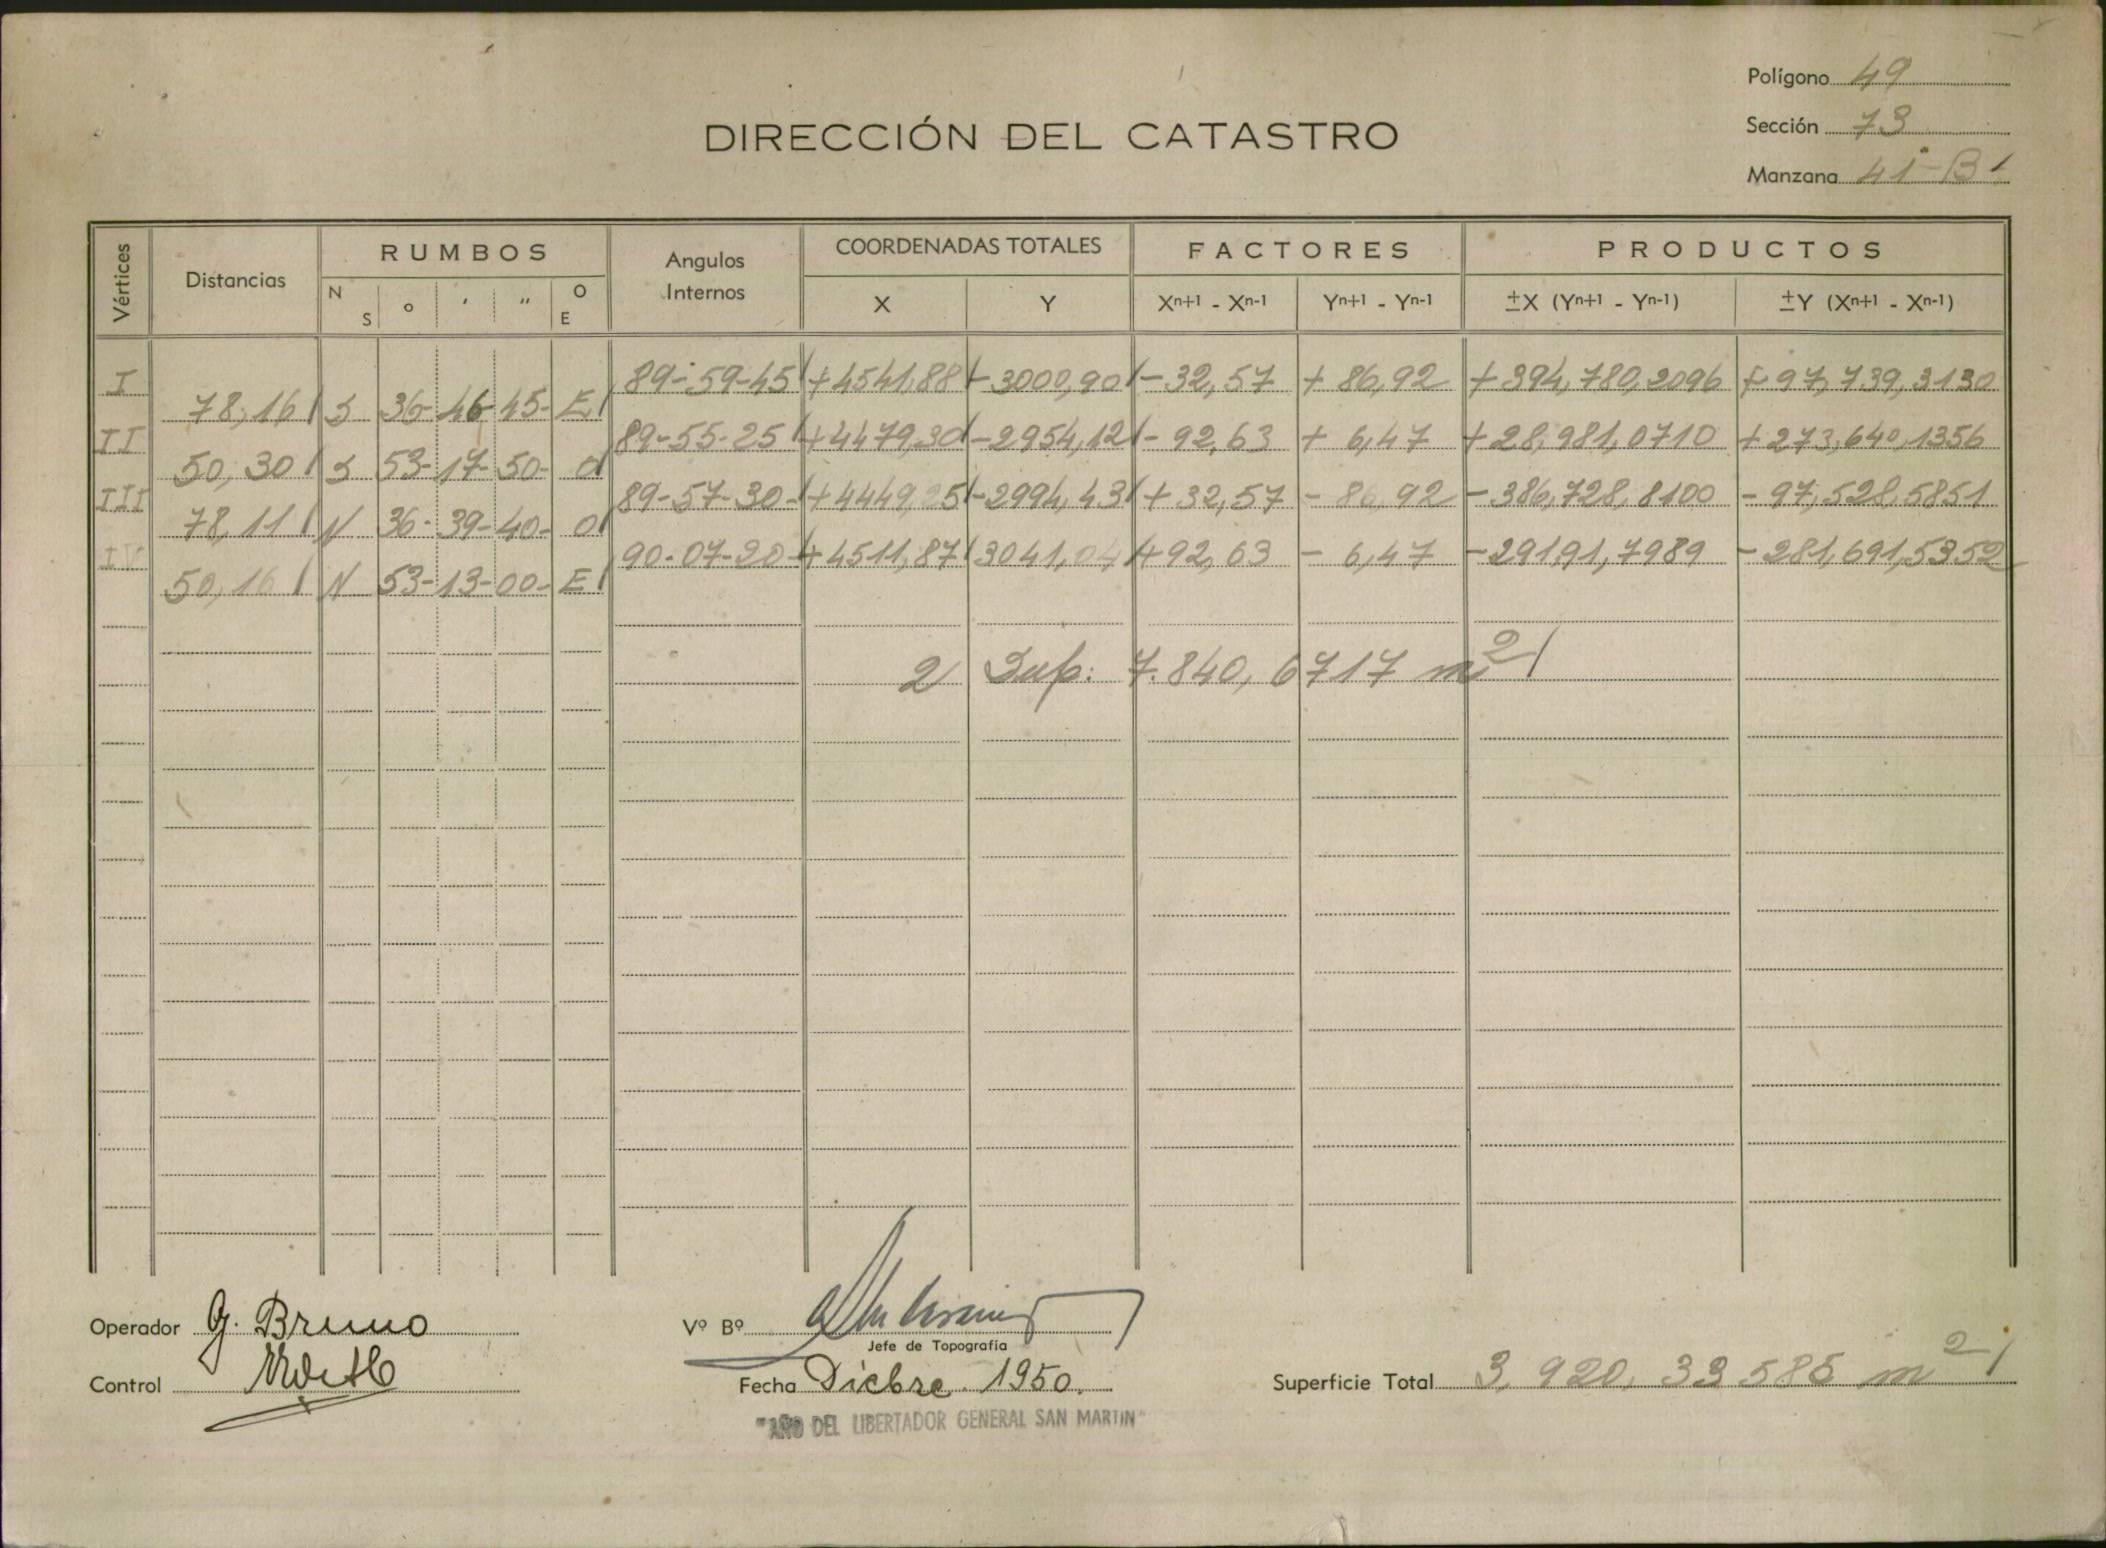 Polígono 49
Sección 73
Manzana 41-B
DIRECCIÓN DEL CATASTRO
Vértices Distancias RUMBOS Angulos Internos COORDENADAS TOTALES FACTORES PRODUCTOS
N S o ′ ″ O E X Y Xn+1 - Xn-1 Yn+1 - Yn-1 ±X (Yn+1 - Yn-1) ±Y (Xn+1 - Xn-1)
I 89-59-45 +4541,88 -3000,90 -32,57 +86,92 +394,780,2096 +97,739,3130
78,16 S 36-46-45- E
II 89-55-25 +4479,30 -2954,12 -92,63 +6,47 +28,981,0710 +273,640,1356
50,30 S 53-17-50- O
III 89-57-30- +4449,25 -2994,43 +32,57 -86,92 -386,728,8100 -97,528,5851
78,11 N 36-39-40- O
IV 90-07-20- +4511,87 3041,04 +92,63 -6,47 -29191,7989 -281,691,5352
50,16 N 53-13-00- E
2 Sup: 7.840,6717 m2
Operador G. Bruno
Vº Bº
Jefe de Topografía
Control
Fecha Dicbre. 1950.
Superficie Total 3,920,33585 m2
"AÑO DEL LIBERTADOR GENERAL SAN MARTIN"